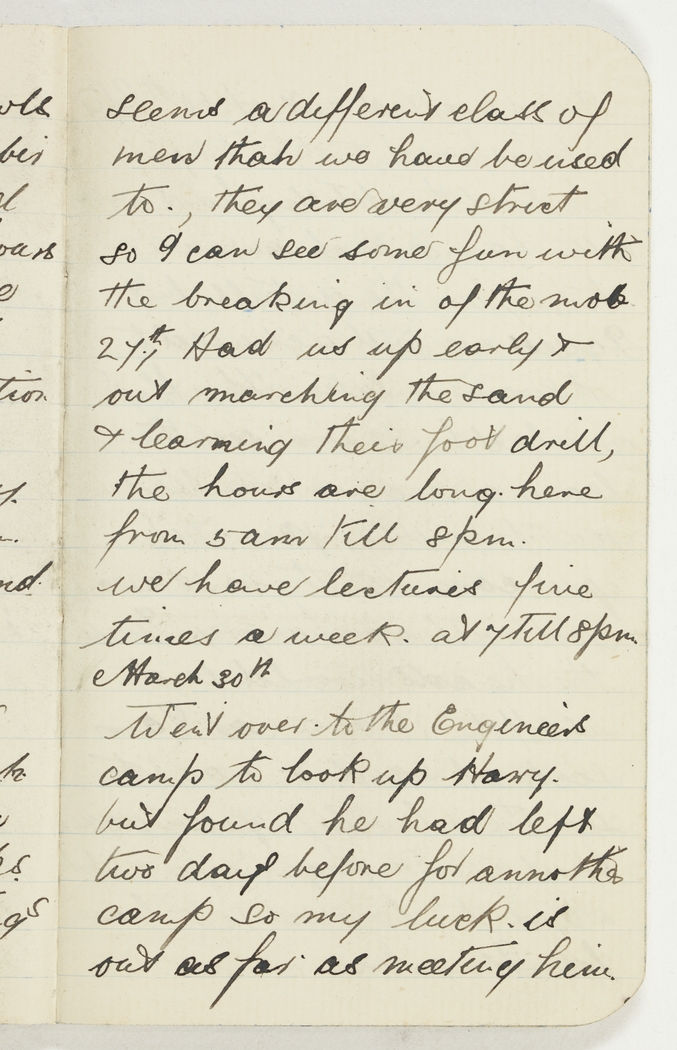 seems a different class of
men than we have be used
to., they are very strict
so I can see some fun with
the breaking in of the mob
27th; Had us up early &
out marching the sand
& learning their foot drill,
the hours are long. here
from 5am till 8pm.
we have lectures five
times a week. at 7 till 8pm.
March 30th
Went over to the Engineers
camp to look up Harry.
but found he had left
two days before for annother
camp so my luck. is
out as far as meeting him.